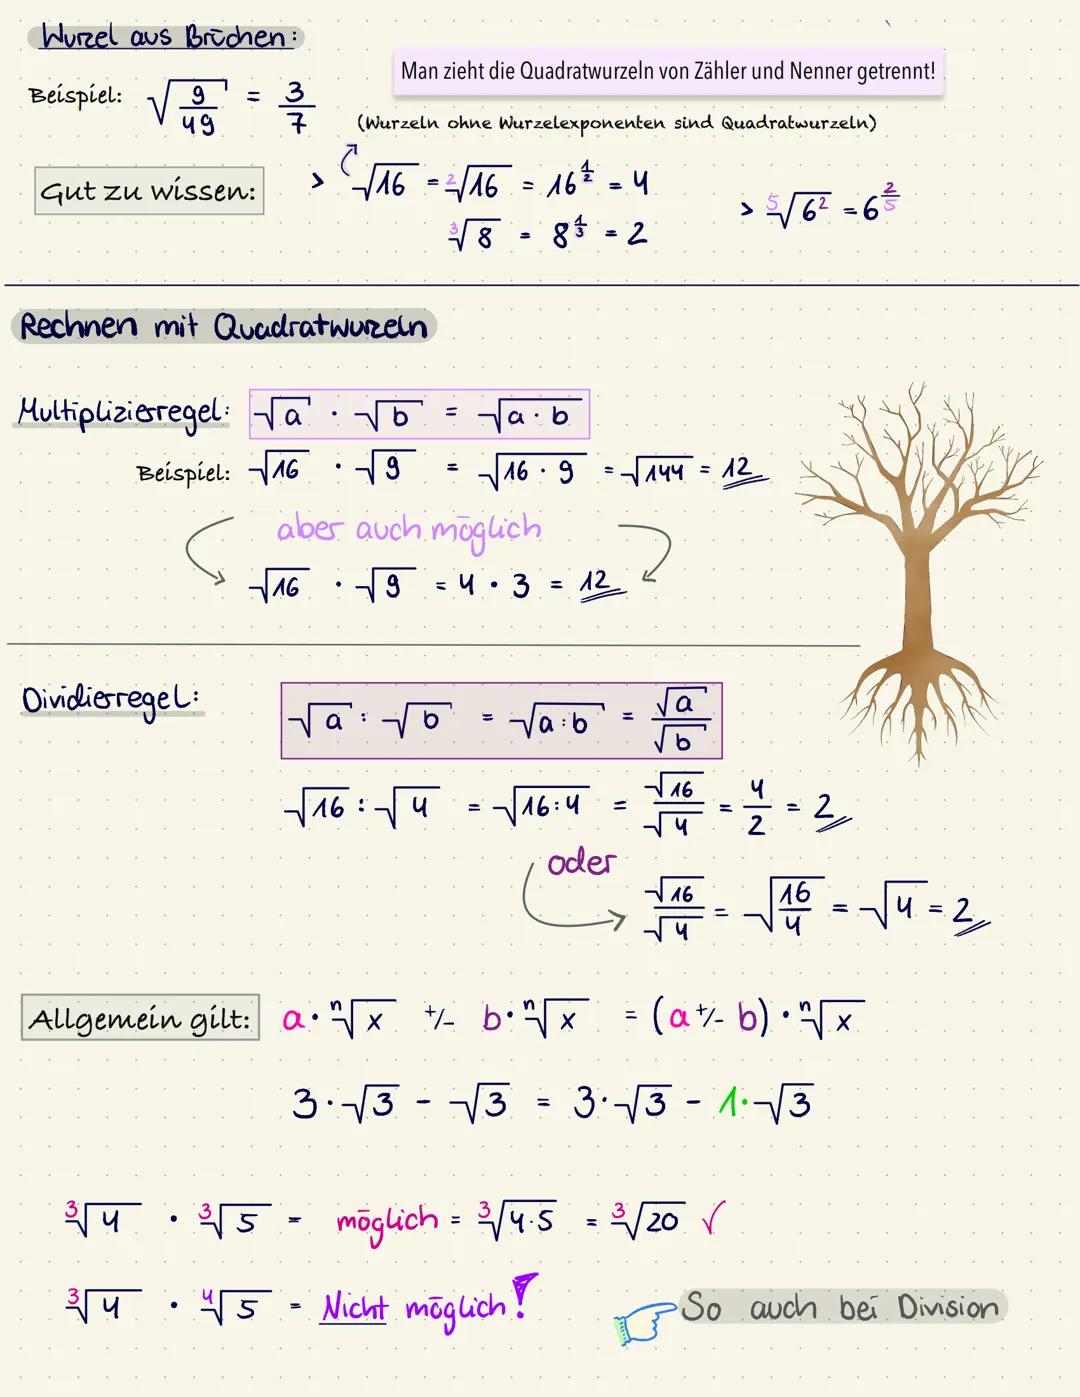 Wurzel aus Brüchen:
Man zieht die Quadratwurzeln von Zähler und Nenner getrennt!
Beispiel: √(9/49) = 3/7
(Wurzeln ohne Wurzelexponenten sind Quadratwurzeln)
Gut zu wissen: > √16 = ²√16 = 16^(1/2) = 4
> ⁵√6² = 6^(2/5)
³√8 = 8^(1/3) = 2
Rechnen mit Quadratwurzeln
Multiplizierregel: √a · √b = √a · b
Beispiel: √16 · √9 = √16 · 9 = √144 = 12
aber auch möglich
√16 · √9 = 4 · 3 = 12
Dividierregel: √a : √b = √a:b = √a/√b
√16 : √4 = √16:4 = √16/√4 = 4/2 = 2
oder
√16/√4 = √(16/4) = √4 = 2
Allgemein gilt: a · ⁿ√x +/- b · ⁿ√x = (a +/- b) · ⁿ√x
3·√3 - √3 = 3·√3 - 1·√3
³√4 · ³√5 = möglich = ³√4·5 = ³√20 ✓
³√4 · ⁴√5 = Nicht möglich!
So auch bei Division